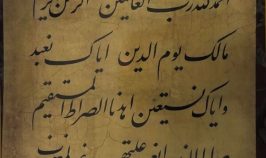 الحمد لله رب العالمین الرحمن الرحیم
مالک یوم الدین ایاک نعبد
وایاک نستعین اهدنا الصراط المستقیم
صراط الذین انعمت علیهم غیر